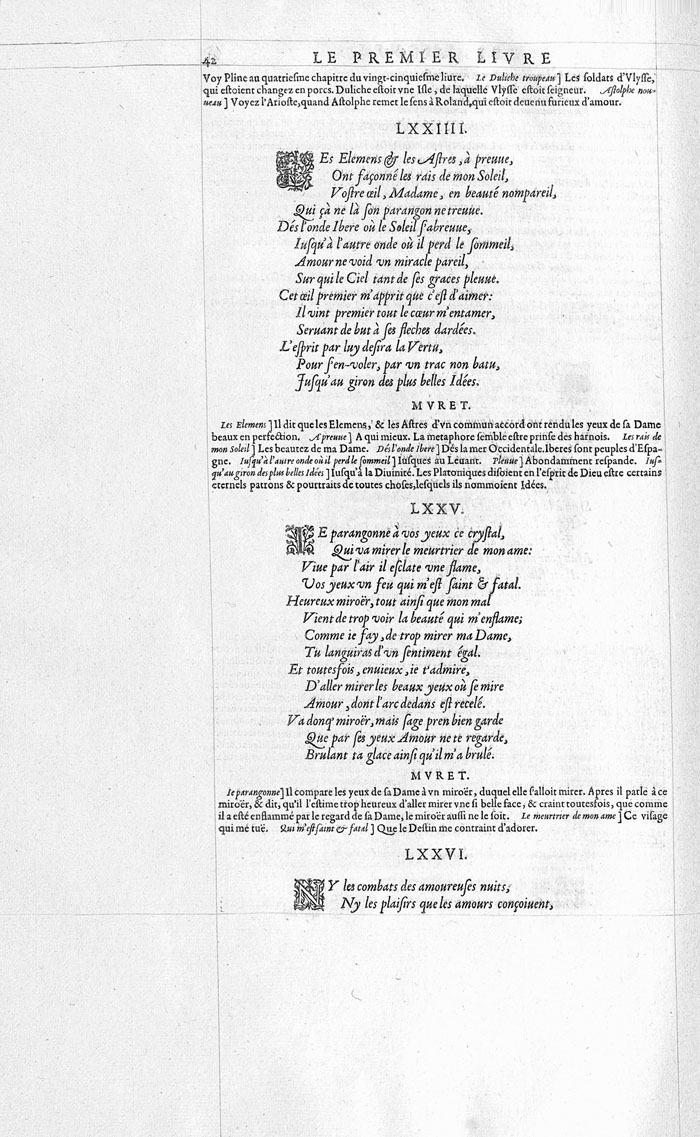 42 LE PREMIER LIVRE
Voy Pline au quatriesme chapitre du vingt-cinquiesme liure. Le Duliche troupeau] Les soldats d'Vlysse,
qui estoient changez en porcs. Duliche estoit vne Isle, de laquelle Vlysse estoit seigneur. Astolphe nou-
ueau] Voyez l'Arioste, quand Astolphe remet le sens à Roland, qui estoit deuenu furieux d'amour.
LXXIIII.
LEs Elemens & les Astres, à preuue,
Ont façonné les rais de mon Soleil,
Vostre œil, Madame, en beauté nompareil,
Qui çà ne là son parangon ne treuue.
Dés l'onde Ibere où le Soleil s'abreuue,
Iusqu'à l'autre onde où il perd le sommeil,
Amour ne void vn miracle pareil,
Sur qui le Ciel tant de ses graces pleuue.
Cet œil premier m'apprit que c'est d'aimer:
Il vint premier tout le cœur m'entamer,
Seruant de but à ses fleches dardées.
L'esprit par luy desira la Vertu,
Pour s'en-voler, par vn trac non batu,
Jusqu'au giron des plus belles Idées.
MVRET.
Les Elemens] Il dit que les Elemens, & les Astres d'vn commun accord ont rendu les yeux de sa Dame
beaux en perfection. A preuue] A qui mieux. La metaphore semble estre prinse des harnois. Les rais de
mon Soleil] Les beautez de ma Dame. Dés l'onde Ibere] Dés la mer Occidentale. Iberes sont peuples d'Espa-
gne. Iusqu'à l'autre onde où il perd le sommeil] Iusques au Leuant. Pleuue] Abondamment respande. Ius-
qu'au giron des plus belles Idées] Iusqu'à la Diuinité. Les Platoniques disoient en l'esprit de Dieu estre certains
eternels patrons & pourtraits de toutes choses, lesquels ils nommoient Idées.
LXXV.
IE parangonne à vos yeux ce crystal,
Qui va mirer le meurtrier de mon ame:
Viue par l'air il esclate vne flame,
Vos yeux vn feu qui m'est saint & fatal.
Heureux miroër, tout ainsi que mon mal
Vient de trop voir la beauté qui m'enflame;
Comme ie fay, de trop mirer ma Dame,
Tu languiras d'vn sentiment égal.
Et toutesfois, enuieux, ie t'admire,
D'aller mirer les beaux yeux où se mire
Amour, dont l'arc dedans est recelé.
Va donq' miroër, mais sage pren bien garde
Que par ses yeux Amour ne te regarde,
Brulant ta glace ainsi qu'il m'a brulé.
MVRET.
Ie parangonne] Il compare les yeux de sa Dame à vn miroër, duquel elle s'alloit mirer. Apres il parle à ce
miroër, & dit, qu'il l'estime trop heureux d'aller mirer vne si belle face, & craint toutesfois, que comme
il a esté enflammé par le regard de sa Dame, le miroër aussi ne le soit. Le meurtrier de mon ame] Ce visage
qui me tuë. Qui m'est saint & fatal] Que le Destin me contraint d'adorer.
LXXVI.
NY les combats des amoureuses nuits,
Ny les plaisirs que les amours conçoiuent,